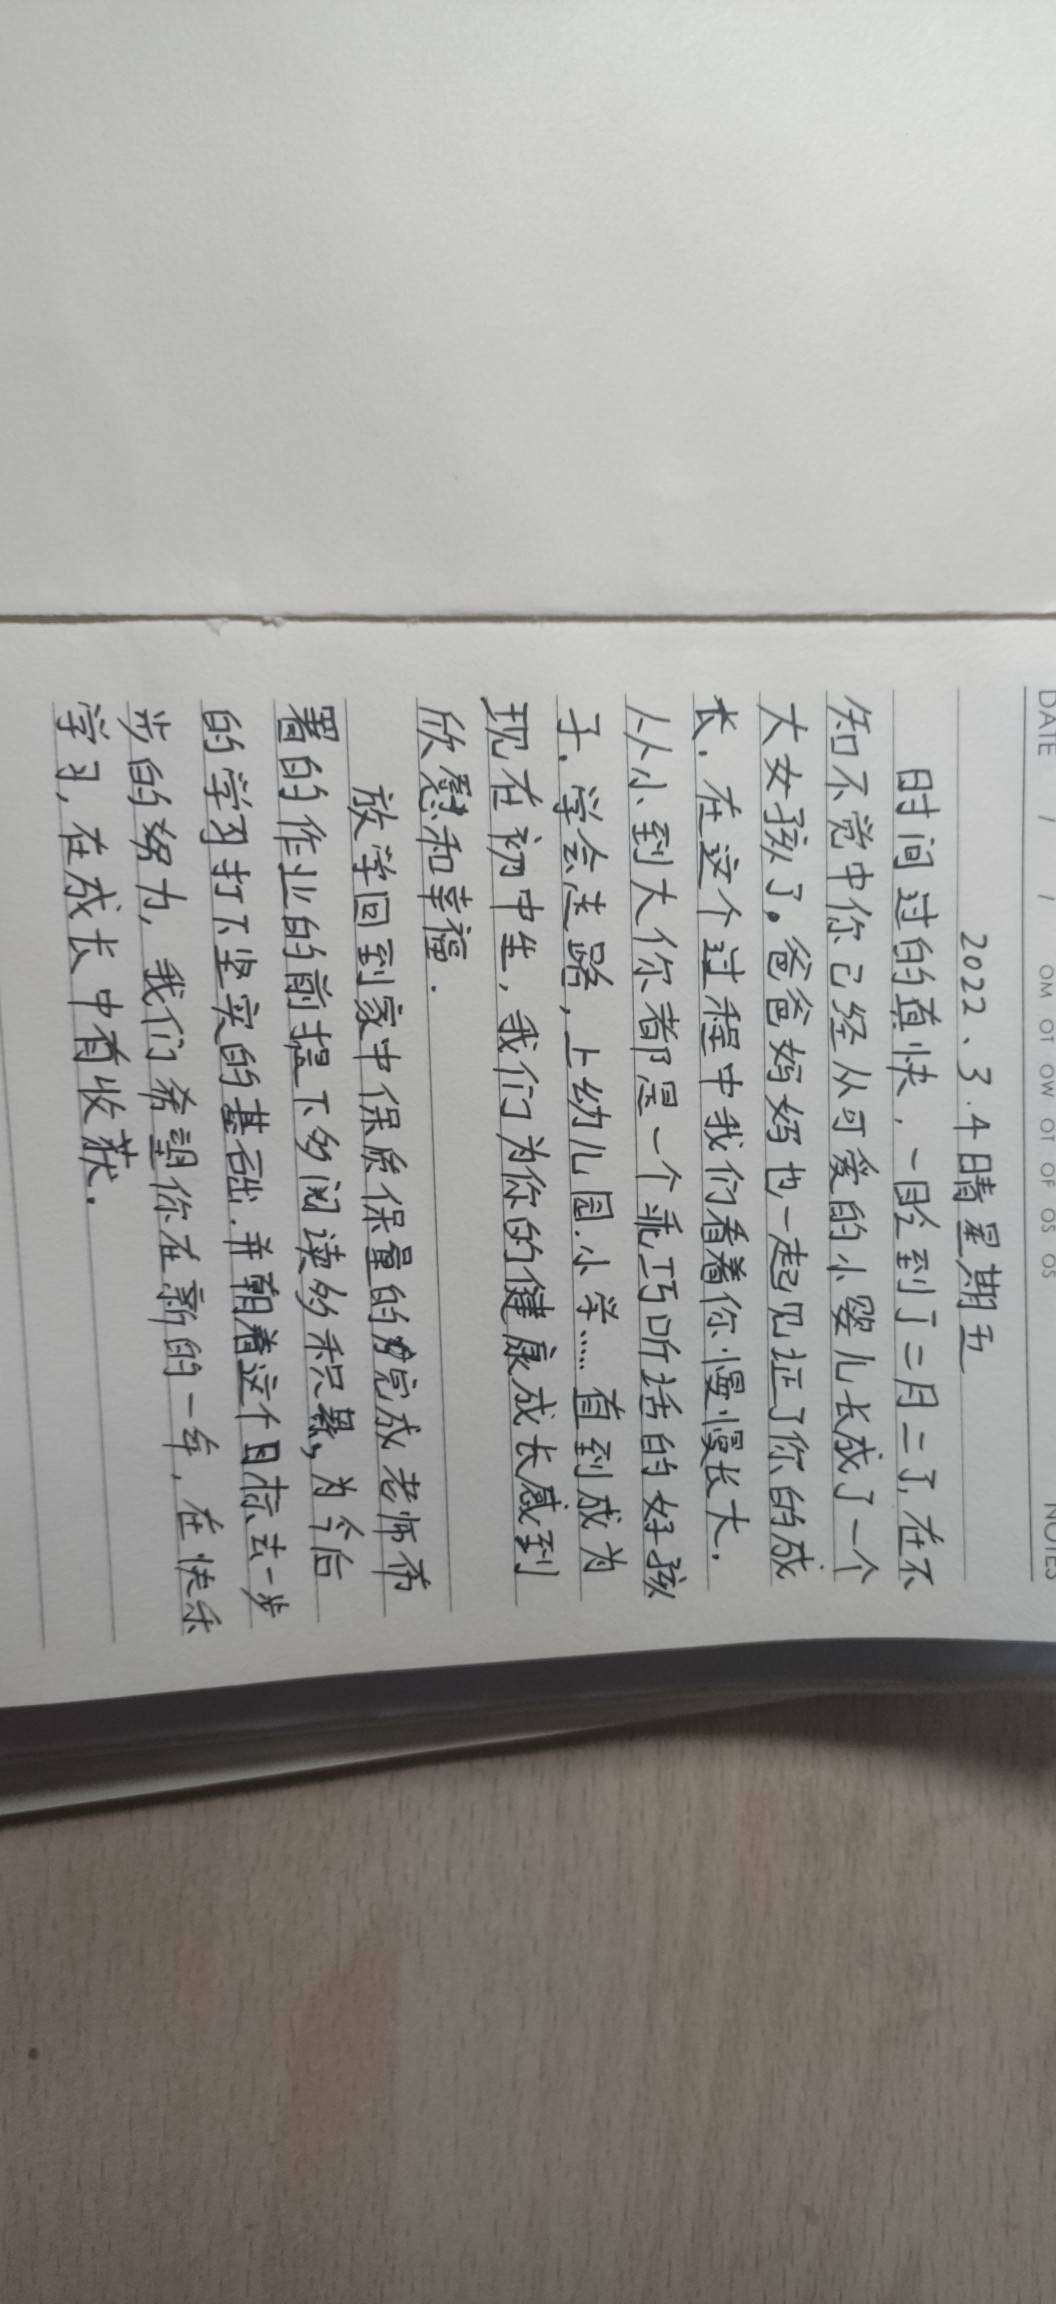 DATE / /
NOTES
OM OT OW OT OF OS OS
2022、3.4晴星期五
时间过的真快，一眨到了二月二了，在不
知不觉中你已经从可爱的小婴儿长成了一个
大女孩了。爸爸妈妈也一起见证了你的成
长．在这个过程中我们看着你慢慢长大．
从从小到大你都是一个乖巧听话的好孩
子．学会走路，上幼儿园．小学……直到成为
现在初中生，我们为你的健康成长感到
欣慰和幸福．
放学回到家中保质保量的完成老师布
署的作业的前提下多阅读多积累，为今后
的学习打下坚实的基础．并朝着这个目标去一步
步的努力，我们希望你在新的一年，在快乐
学习，在成长中有收获．